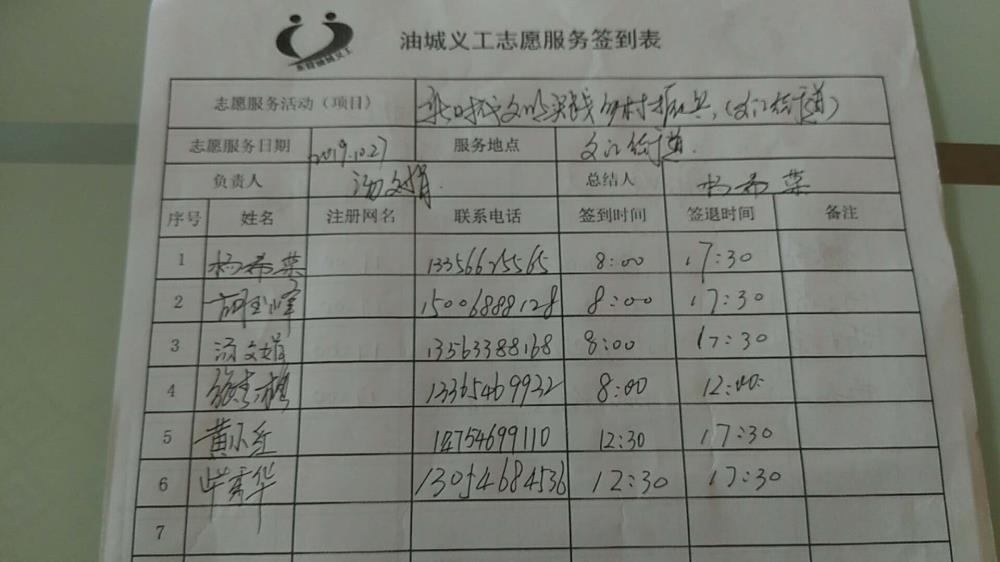 油城义工志愿服务签到表
志愿服务活动（项目） 新时代文明实践乡村振兴（文汇街道）
志愿服务日期 2019.10.27 服务地点 文汇街道
负责人 汤文娟 总结人 杨希荣
序号 姓名 注册网名 联系电话 签到时间 签退时间 备注
1 杨希荣 13356625565 8:00 17:30
2 胡玉峰 15006888128 8:00 17:30
3 汤文娟 13563388168 8:00 17:30
4 13365469932 8:00 12:00
5 黄小红 14754699110 12:30 17:30
6 华 13054684536 12:30 17:30
7